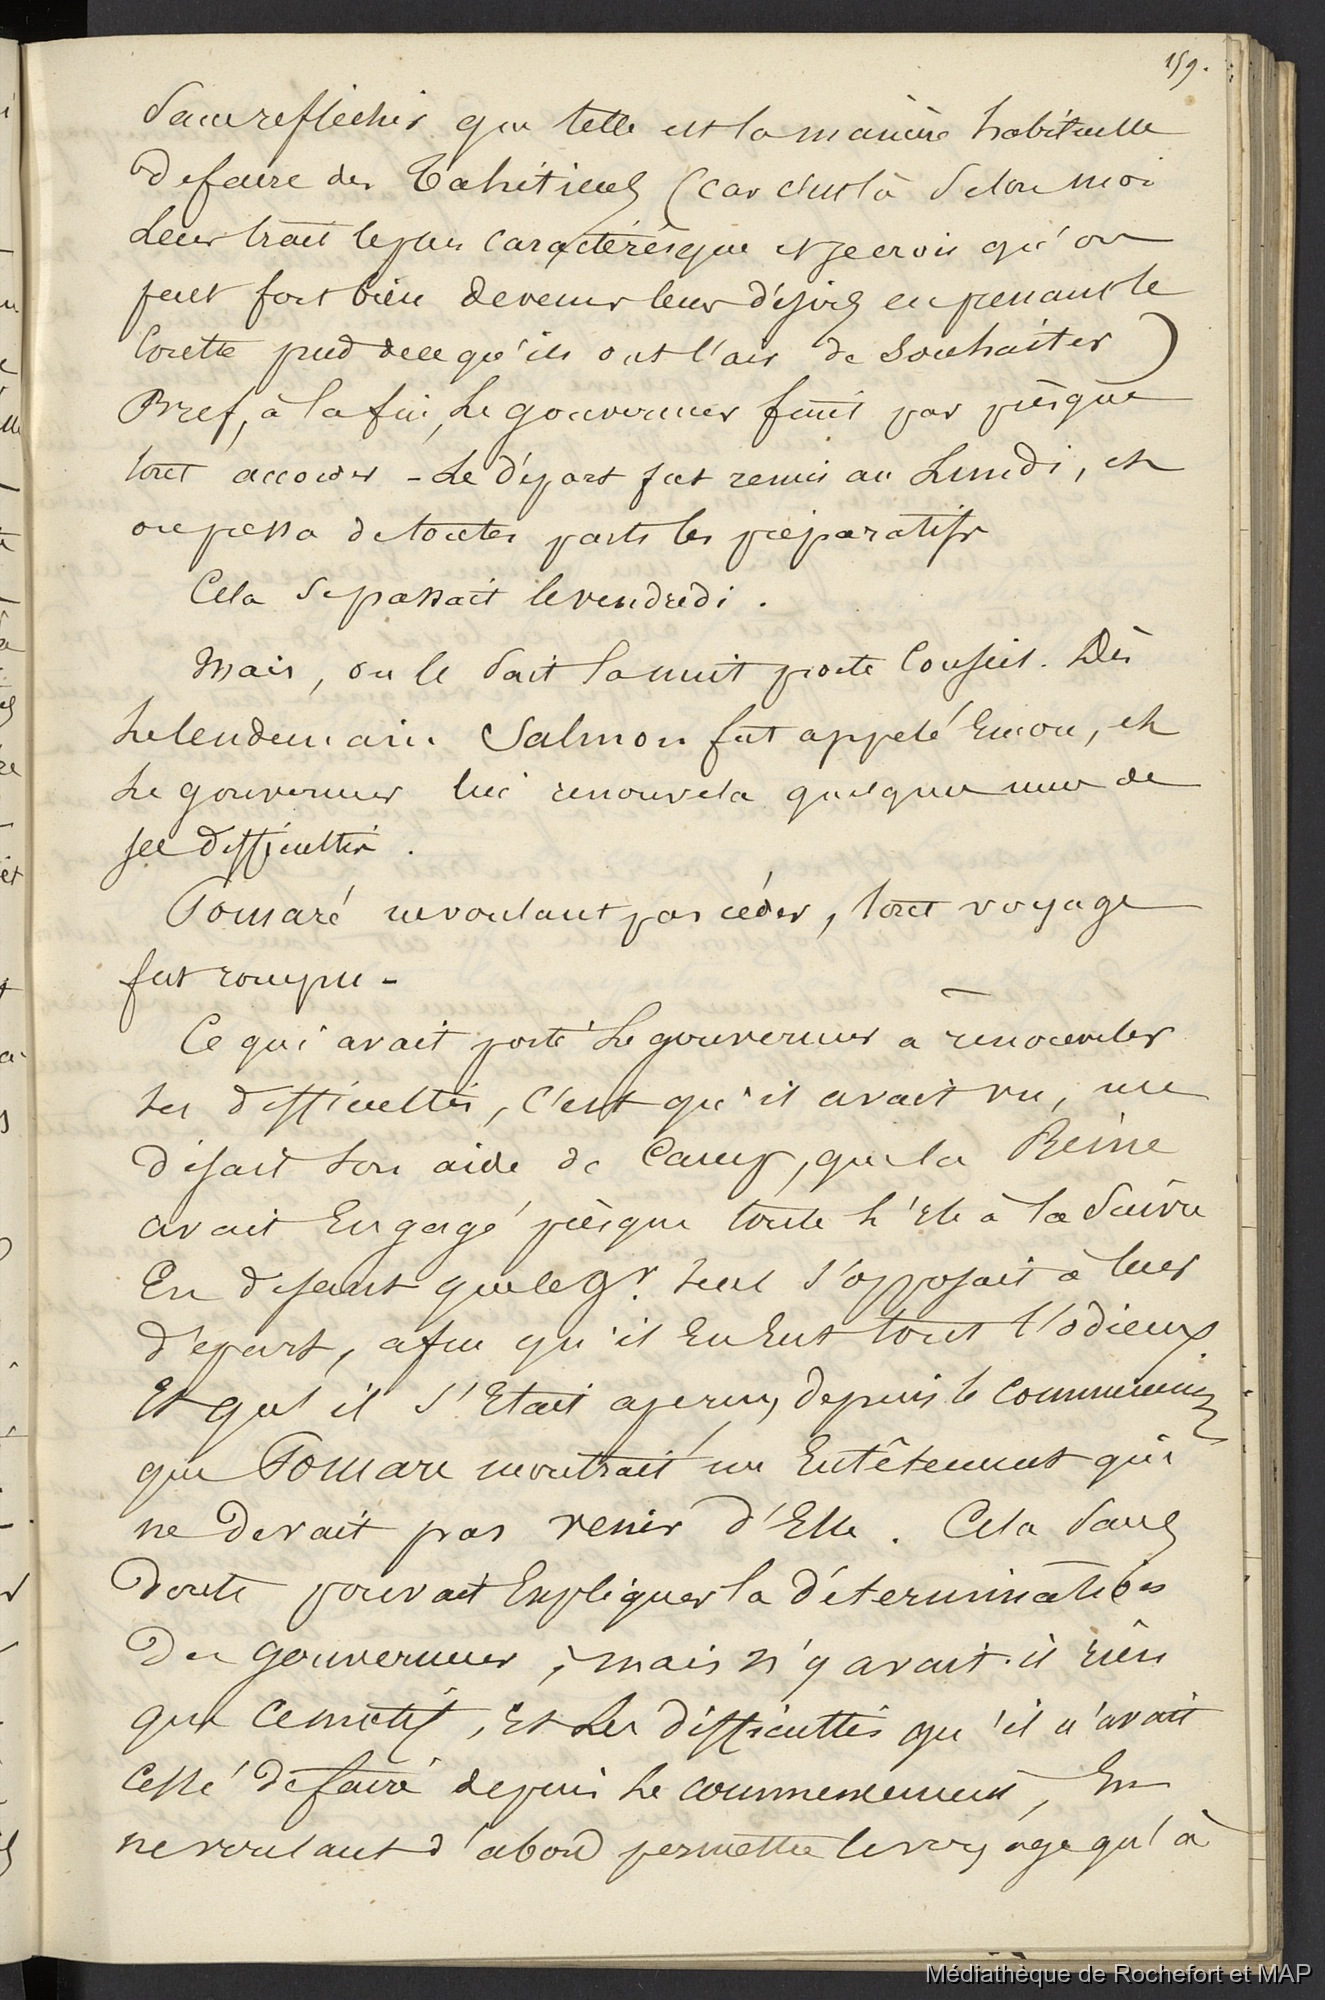 159.
Sans refléchir que telle est la manière habituelle
de faire des Tahitiens (car c'est là selon moi
leur trait le plus caractéresque et je crois qu'on
peut fort bien deviner leurs désirs en prenant le
contre pied de ce qu'ils ont l'air de souhaiter)
Bref, à la fin, le gouverneur finit par présque
tout accorder - Le départ fut remis au Lundi, et
on pressa de toutes parts les préparatifs
Cela se passait le vendredi.
Mais, on le sait la nuit porte conseil. Dès
le lendemain Salmon fut appelé encore, et
le gouverneur lui renouvela quelques unes de
ses difficultés.
Pomaré ne voulant pas céder, tout voyage
fut rompu -
Ce qui avait porté le gouverneur à renouveler
les difficultés, c'est qu'il avait vu, me
disait son aide de Camp, que la Reine
avait engagé présque toute l'île à la suivre
En disant que le Gr. seul s'opposait à leur
départ, afin qu'il en eut tout l'odieux.
Et qu'il s'était aperçu, depuis le commencement
que Pomaré montrait un entêtement qui
ne devait pas venir d'Elle. Cela sans
doute pouvait expliquer la détermination
du gouverneur; mais n'y avait-il rien
que ce motif, et les difficultés qu'il n'avait
cessé de faire depuis le commencement, En
ne voulant d'abord permettre le voyage qu'à
Médiathèque de Rochefort et MAP